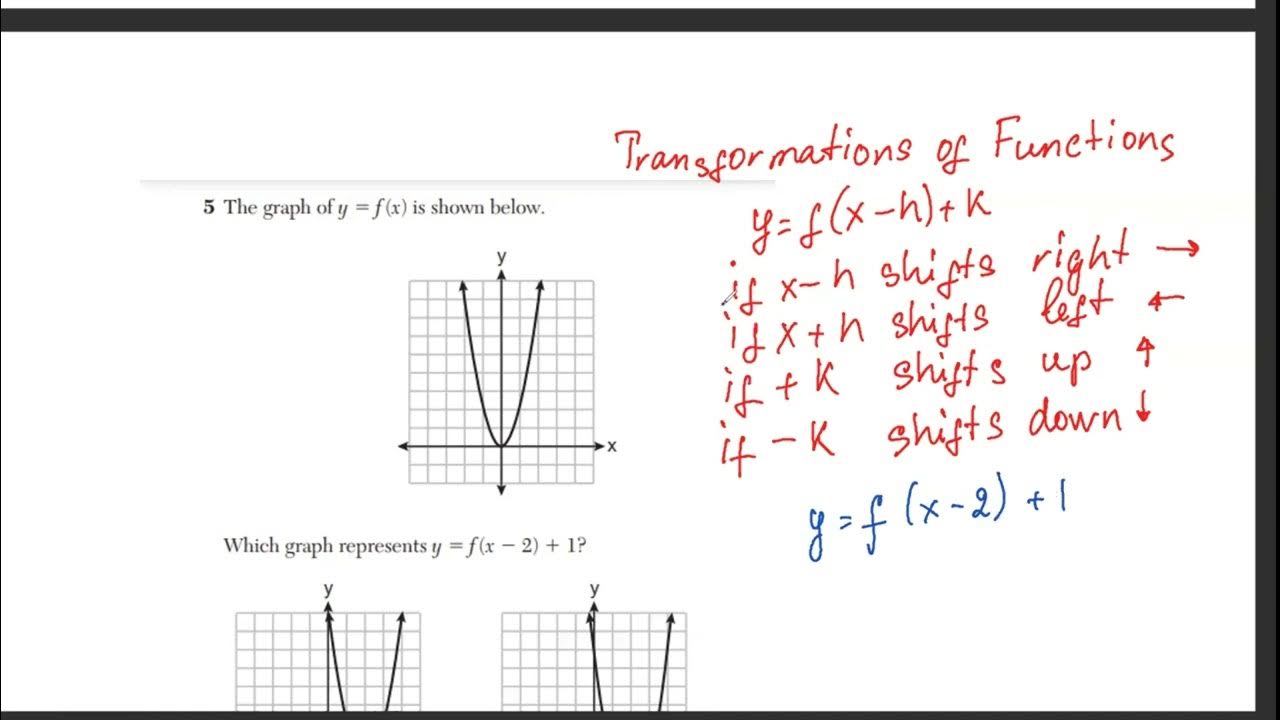 Transformations of Functions
5 The graph of y = f(x) is shown below.
y = f(x-h)+k
y
if x-h shifts right →
if x+h shifts left ←
if +k shifts up ↑
if -k shifts down ↓
x
y = f(x-2) + 1
Which graph represents y = f(x − 2) + 1?
y
y